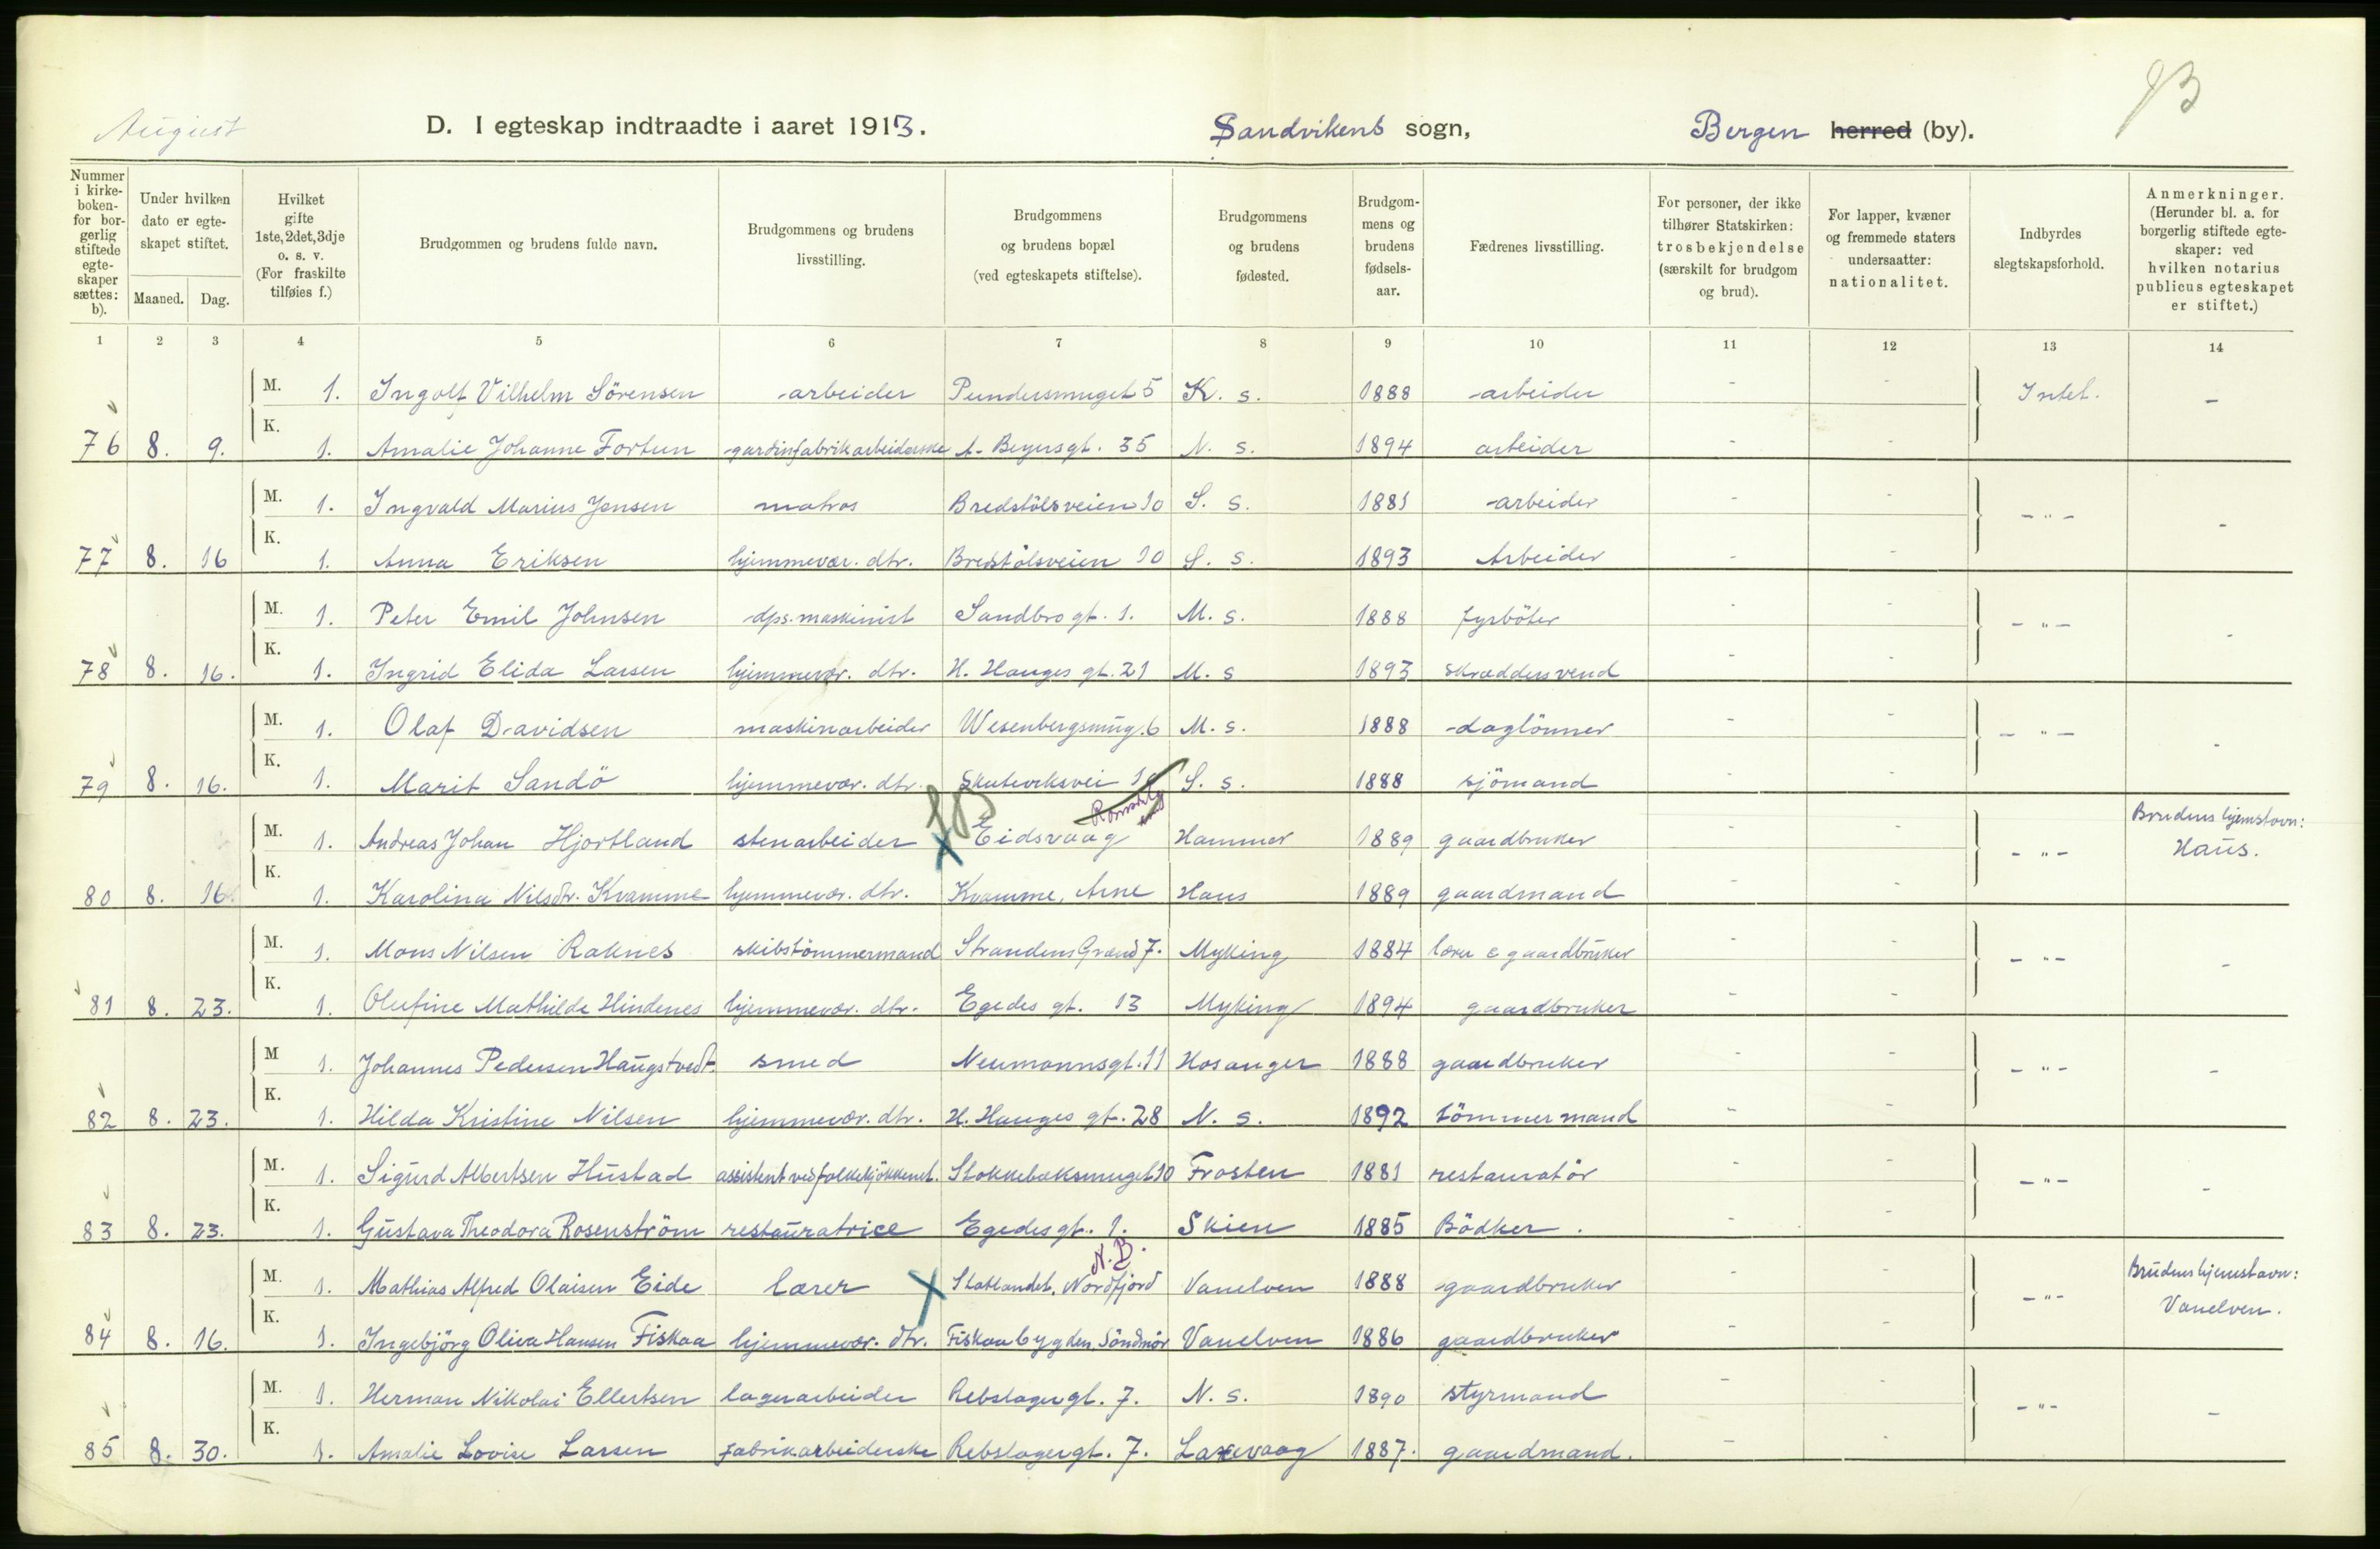 August
D. I egteskap indtraadte i aaret 1913. Sandvikens sogn, Bergen herred (by).
Nummer i kirke-boken- for bor-gerlig stiftede egte-skaper sættes: b).
Under hvilken dato er egte-skapet stiftet.
Maaned. Dag.
Hvilket gifte 1ste, 2det, 3dje o. s. v. (For fraskilte tilføies f.)
Brudgommen og brudens fulde navn.
Brudgommens og brudens livsstilling.
Brudgommens og brudens bopæl (ved egteskapets stiftelse).
Brudgommens og brudens fødested.
Brudgom-mens og brudens fødsels-aar.
Fædrenes livsstilling.
For personer, der ikke tilhører Statskirken: trosbekjendelse (særskilt for brudgom og brud).
For lapper, kvæner og fremmede staters undersaatter: nationalitet.
Indbyrdes slegtskapsforhold.
Anmerkninger. (Herunder bl. a. for borgerlig stiftede egte-skaper: ved hvilken notarius publicus egteskapet er stiftet.)
1 2 3 4 5 6 7 8 9 10 11 12 13 14
M. 1. Ingolf Vilhelm Sörensen arbeider Pundersmuget 5 K. s. 1888 arbeider - - Intet. -
76 8. 9. K. 1. Amalie Johanne Fortun gardinfabrikarbeiderske A. Beyersgt. 35 N. s. 1894 arbeider - -
M. 1. Ingvald Marius Jensen matros Bredstölsveien 10 S. s. 1881 arbeider - - - " - -
77 8. 16 K. 1. Anna Eriksen hjemmevær. dtr. Bredstölsveien 10 S. s. 1893 Arbeider - -
M. 1. Peter Emil Johnsen dps. maskinist Sandbrogt. 1. M. s. 1888 fyrböter - - - " - -
78 8. 16. K. 1. Ingrid Elida Larsen hjemmevær. dtr. H. Hauges gt. 21 M. s 1893 skræddersvend - -
M. 1. Olaf Davidsen maskinarbeider Wesenbergsmug. 6 M. s. 1888 daglönner - - - " - -
79 8. 16. K. 1. Marit Sandö hjemmevær. dtr. Skuteviksvei S. s. 1888 sjömand - -
M. 1. Andreas Johan Hjortland stenarbeider x Eidsvaag Hammer 1889 gaardbruker - - - " - Brudens hjemstavn: Haus.
80 8. 16. K. 1. Karolina Nilsdtr. Kvamme hjemmevær. dtr. Kvamme, Arne Haus 1889 gaardmand - -
M. 1. Mons Nilsen Raknes skibstömmermand Strandens Grænd 7. Myking 1884 lærer & gaardbruker - - - " - -
81 8. 23. K. 1. Olufine Mathilde Hindenes hjemmevær. dtr. Egedes gt. 13 Myking 1894 gaardbruker - -
M 1. Johannes Pedersen Haugstvedt. smed Neumannsgt. 11 Hosanger 1888 gaardbruker - - - " - -
82 8. 23. K. 1. Hilda Kristine Nilsen hjemmevær. dtr. H. Hauges gt. 28 N. s. 1892 tömmermand - -
M. 1. Sigurd Albertsen Hustad assistent ved folkekjökkenet. Stokkebæksmuget 10 Frosten 1881 restauratör - - - " - -
83 8. 23. K. 1. Gustava Theodora Rosenström restauratrice Egedesgt. 1. Skien 1885 Bödker. - -
N.B.
M. 1. Mathias Alfred Olaisen Eide lærer x Statlandet, Nordfjord Vanelven 1888 gaardbruker - - - " - Brudens hjemstavn: Vanelven.
84 8. 16. K. 1. Ingebjörg Oliva Hansen Fiskaa hjemmevær. dtr. Fiskaabygden, Söndmör Vanelven 1886 gaardbruker - -
M. 1. Herman Nikolai Ellertsen lagerarbeider Rebslagergt. 7. N. s. 1890 styrmand - - - " - -
85 8. 30. K. 1. Amalie Lovise Larsen fabrikarbeiderske Rebslagergt. 7. Laxevaag 1887. gaardmand. - -